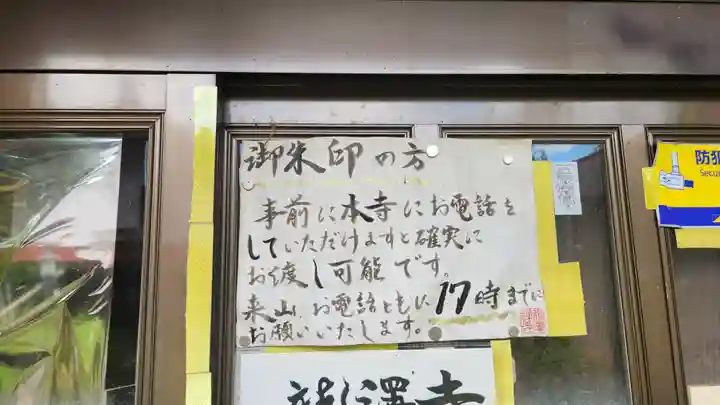 御朱印の方
事前に本寺にお電話を
していただけますと確実に
お渡し可能です。
来山、お電話ともに17時までに
お願いいたします。
龍澤寺
防犯
Secu